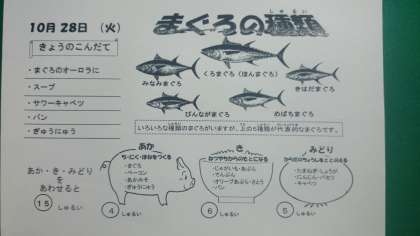 10月 28日 （火）
まぐろの種類
しゅるい
きょうのこんだて
・まぐろのオーロラに
・スープ
・サワーキャベツ
・パン
・ぎゅうにゅう
みなみまぐろ
くろまぐろ（ほんまぐろ）
きはだまぐろ
びんながまぐろ
めばちまぐろ
いろいろな種類のまぐろがいますが、上の5種類が代表的なまぐろです。
あか・き・みどり
を
あわせると
15 しゅるい
あか
ち・にく・ほねをつくる
・まぐろ
・ベーコン
・あかみそ
・ぎゅうにゅう
4 しゅるい
き
ねつやちからのもとになる
・じゃがいも・あぶら
・でんぷん
・オリーブあぶら・さとう
・パン
6 しゅるい
みどり
からだのちょうしをととのえる
・たまねぎ・しょうが
・にんじん・パセリ
・キャベツ
5 しゅるい